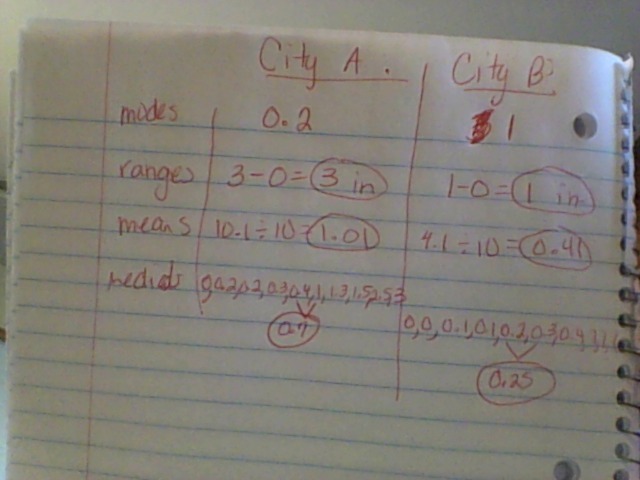 City A. City B.
modes 0.2 1
ranges 3-0= 3 in 1-0= 1 in
means 10.1÷10= 1.01 4.1÷10= 0.41
0,0.2,0.2,0.3,0.4,1,1.3,1.5,2.5,3
0.7 0,0,0.1,0.1,0.2,0.3,0.4,1,1,
0.25